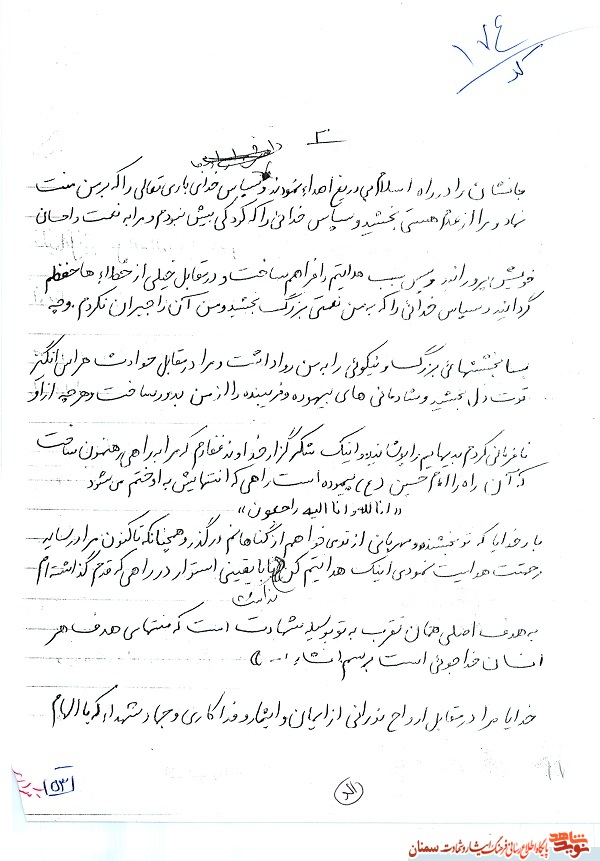 ۱۷۶
کد
۲
جانشان را در راه اسلام بی دریغ اهداء نمودند و سپاس خدائی باری تعالی را که بر من منت
نهاد و مرا از عدم هستی بخشید و سپاس خدائی را که کودکی بیش نبودم و مرا به نعمت و احسانی
خویش پروراند و پس سبب هدایتم را فراهم ساخت و در مقابل خیلی از خطاءها حفظم
گردانید و سپاس خدائی را که بر من نعمتی بزرگ بخشید و من آن را جبران نکردم. و چه
بسا بخششهائی بزرگ و نیکوئی را به من روا داشت و مرا در مقابل حوادث هراس انگیز
قوت دل بخشید و شادمانی های بیهوده و فریبنده را از من بدور ساخت و هر چه از او
نافرمانی کردم بدیهایم را پوشانید و اینک شکر گزار خداوند غفارم که مرا به راهی رهنمون ساخت
که آن راه را امام حسین (ع) پیموده است راهی که انتهایش به او ختم می شود
«انا لله و انا الیه راجعون»
بار خدایا که تو بخشنده و مهربانی از تو می خواهم از گناهانم درگذر و همچنانکه تاکنون مرا در سایه
رحمتت هدایت نمودی اینک هدایتم کن تا با یقینی استوار در راهی که قدم گذاشته ام
به هدف اصلی همان تقرب به تو بوسیله شهادت است که منتهای هدف هر
انسان خداجوئی است برسم انشاء...
خدایا مرا در مقابل ارواح نورانی از ایمان و ایثار و فداکاری و جهاد شهداء که با الهام
۵۳
الف
نوید شاهد
پایگاه اطلاع رسانی فرهنگ ایثار و شهادت سمنان